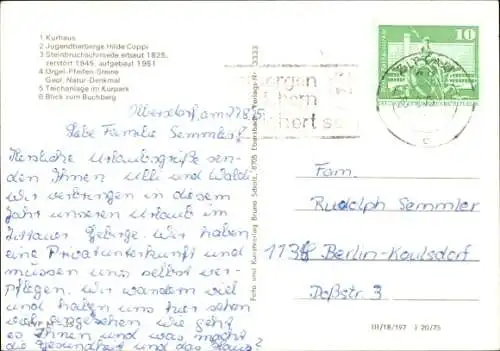 1 Kurhaus
2 Jugendherberge Hilde Coppi
3 Steinbruchschmiede erbaut 1825,
zerstört 1945, aufgebaut 1951
4 Orgel-Pfeifen-Steine
Geol. Natur-Denkmal
5 Teichanlage im Kurpark
6 Blick vom Buchberg
am 27.8.75
Liebe Familie Semmler!
Herzliche Urlaubsgrüße sen-
den Ihnen Ulli und Waldi
wir verbringen in diesem
Jahr unseren Urlaub im
Zittauer Gebirge. Wir haben
eine Privatunterkunft und
müssen uns selbst ver-
pflegen. Wir wandern viel
und haben uns hier schon
viel angesehen wie geht
es Ihnen und was macht
die Gesundheit und das Haus?
Foto und Kunstverlag Bruno Scholz, 8705 Ebersbach
10
Fam.
Rudolph Semmler
1138 Berlin-Kaulsdorf
Doßstr. 3
III/18/197 J 20/75